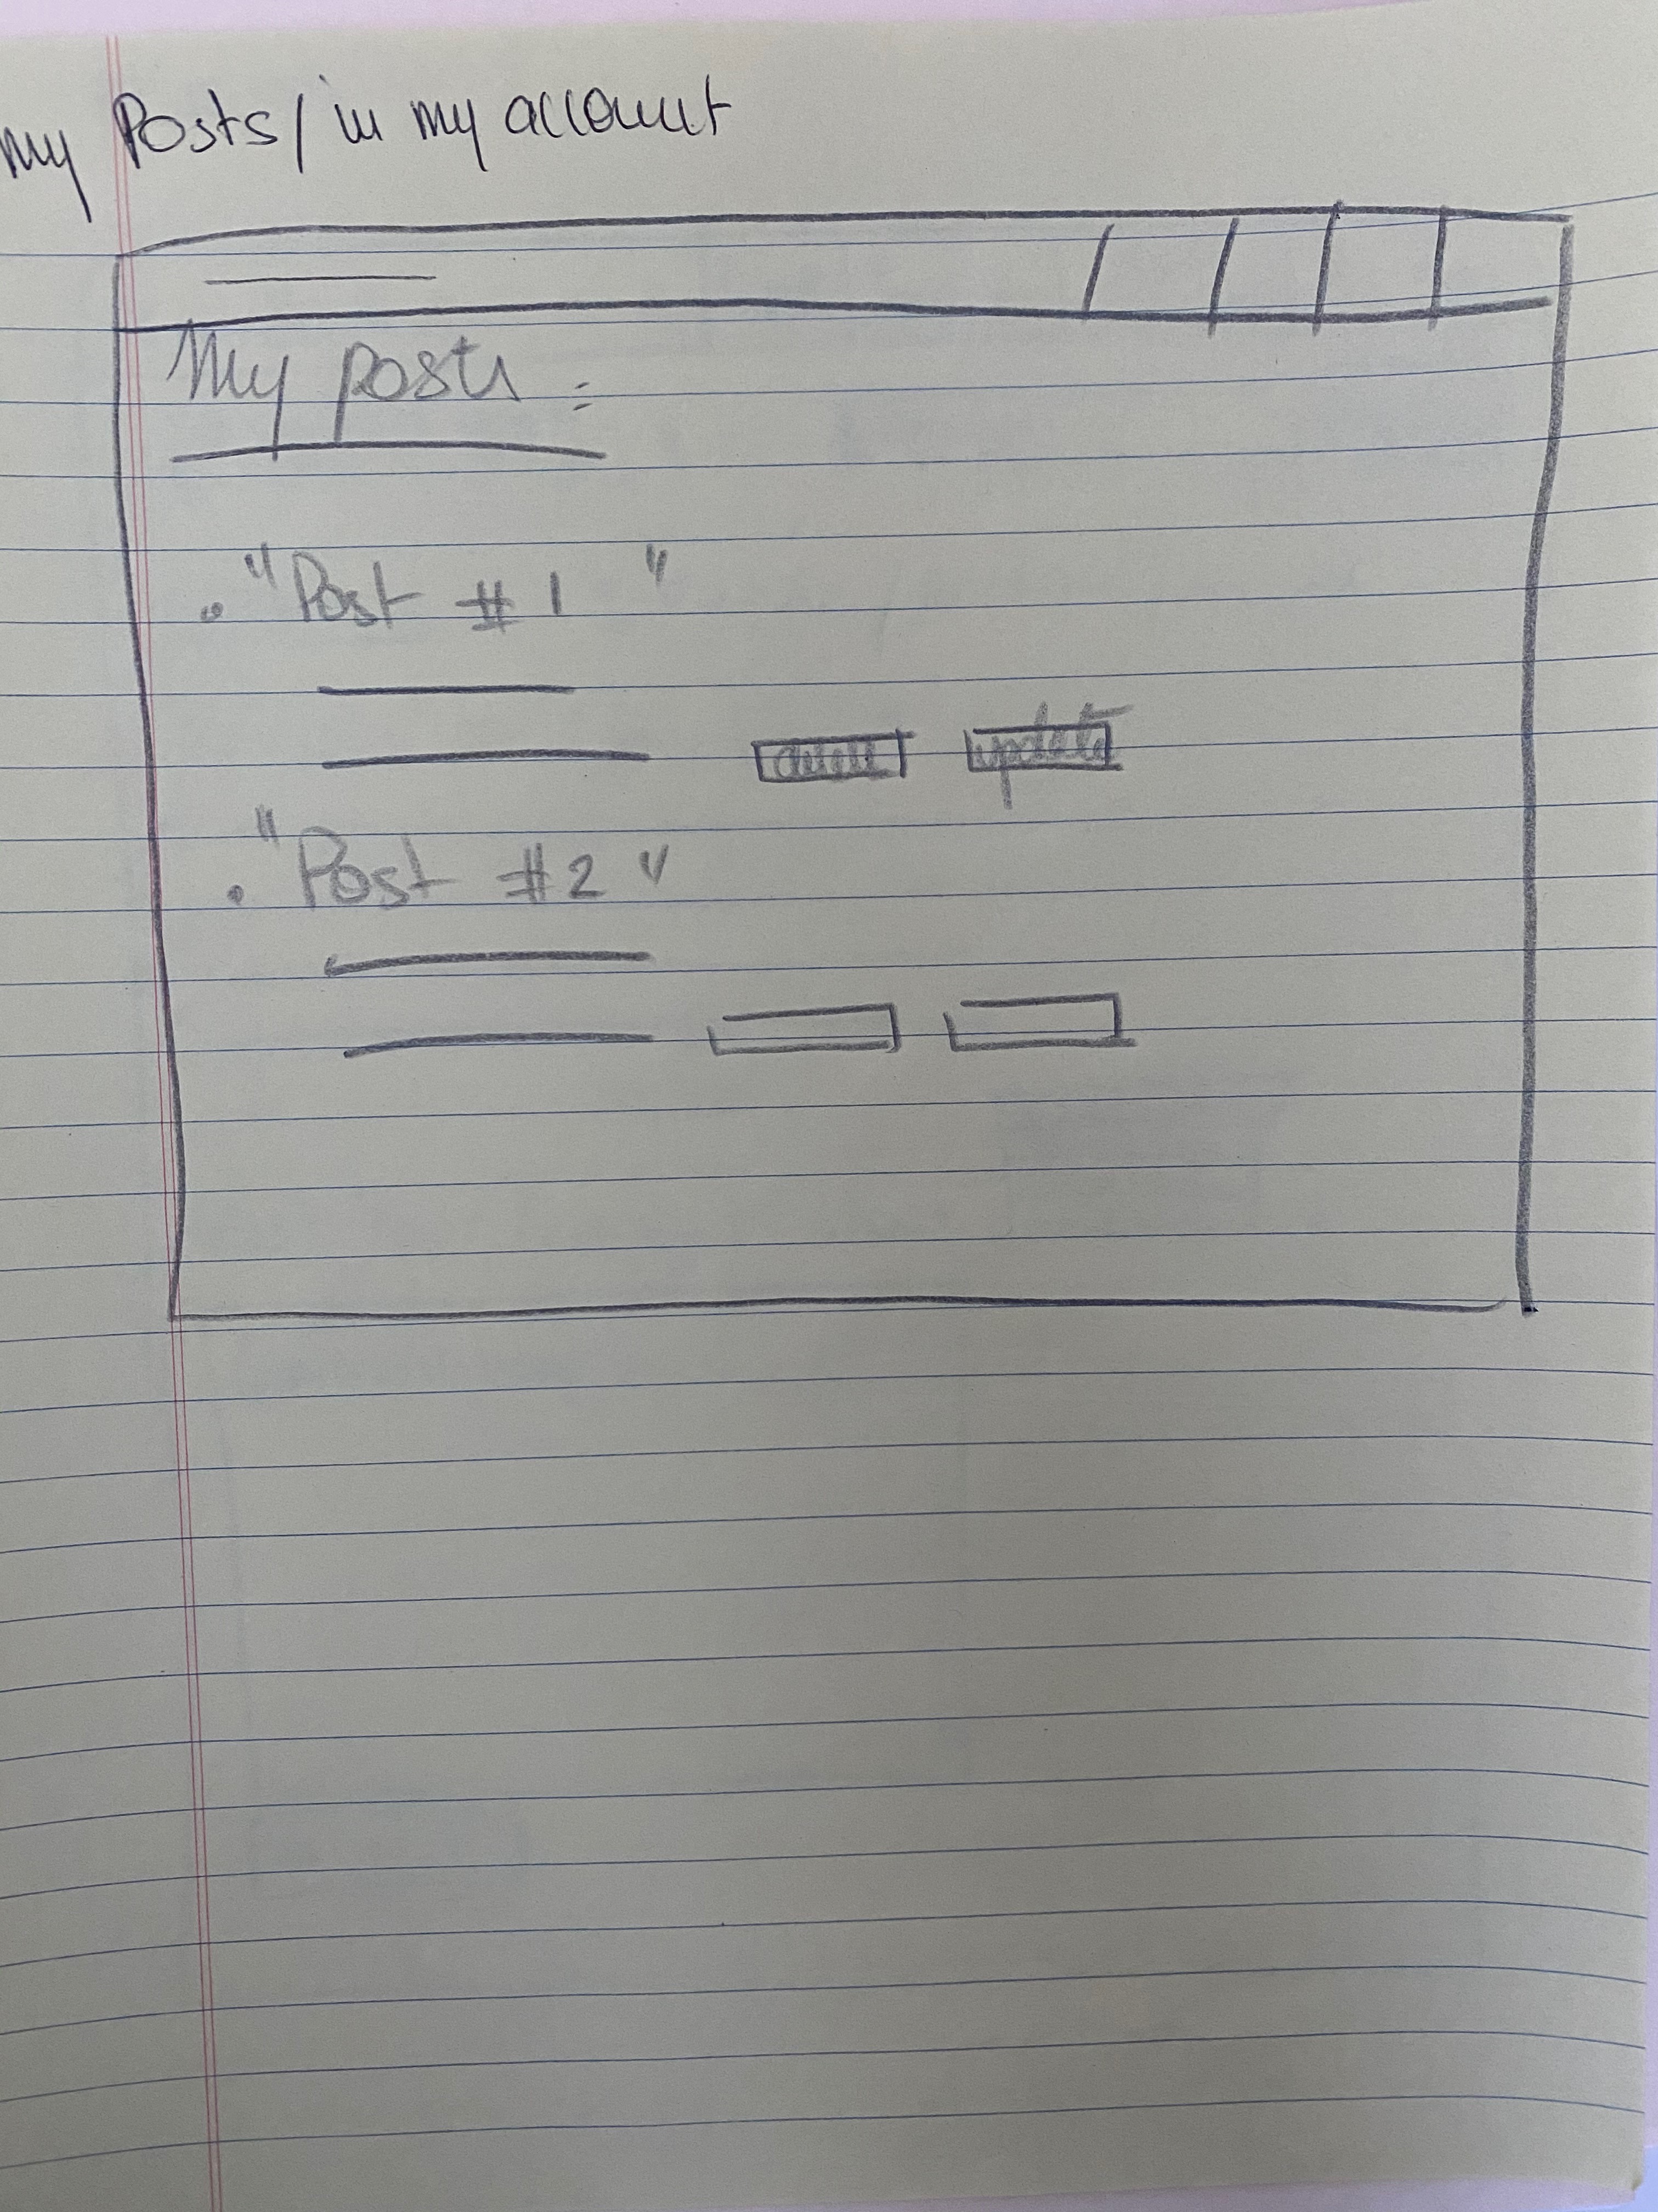 My Posts / in my account
My posts :
. "Post # 1 "
update
. "Post #2"